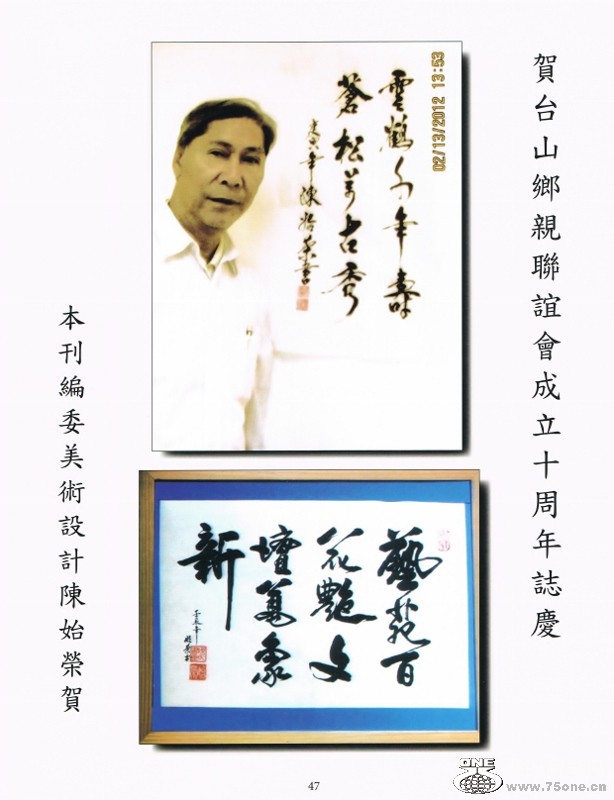 賀台山鄉親聯誼會成立十周年誌慶
02/13/2012 13:53
雲鶴千年壽
蒼松萬古秀
庚寅年陳始榮書
藝苑百
花艷文
壇萬象
新
壬辰年
本刊編委美術設計陳始榮賀
47
ONE
www.75one.cn